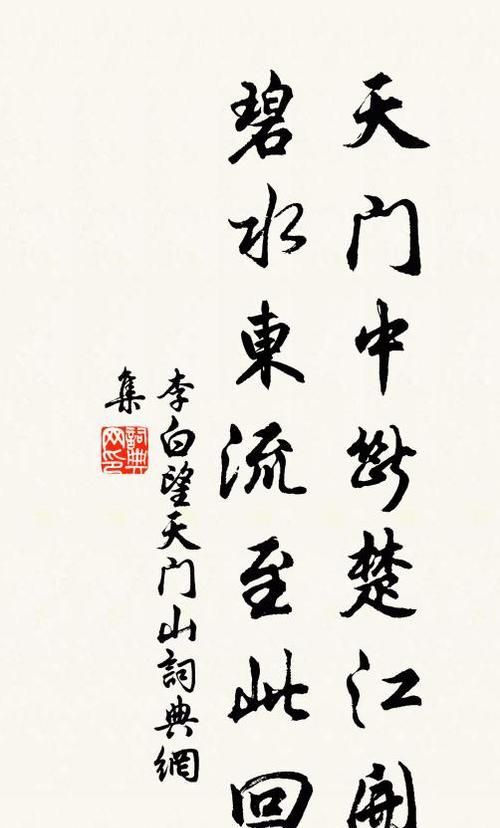 天门中断楚江開
碧水東流至此回
李白望天门山詞典網
集
詞典网印